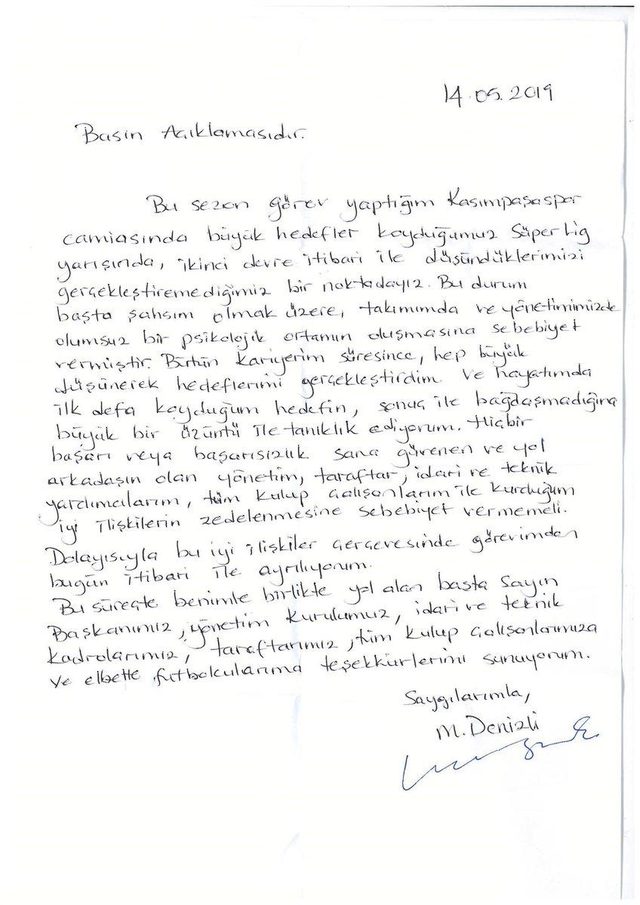 14.05.2019
Basın Açıklamasıdır.
Bu sezon görev yaptığım Kasımpaşaspor
camiasında büyük hedefler koyduğumuz Süper Lig
yarışında, ikinci devre itibari ile düşündüklerimizi
gerçekleştiremediğimiz bir noktadayız. Bu durum
başta şahsım olmak üzere, takımımda ve yönetimimizde
olumsuz bir psikolojik ortamın oluşmasına sebebiyet
vermiştir. Bütün kariyerim süresince, hep büyük
düşünerek hedeflerimi gerçekleştirdim ve hayatımda
ilk defa koyduğum hedefin, sonuç ile bağdaşmadığına
büyük bir üzüntü ile tanıklık ediyorum. Hiçbir
başarı veya başarısızlık sana güvenen ve yol
arkadaşın olan yönetim, taraftar, idari ve teknik
yardımcılarım, tüm kulup çalışanlarım ile kurduğum
iyi ilişkilerin zedelenmesine sebebiyet vermemeli.
Dolayısıyla bu iyi ilişkiler çerçevesinde görevimden
bugün itibari ile ayrılıyorum.
Bu süreçte benimle birlikte yol alan başta Sayın
Başkanımız, yönetim kurulumuz, idari ve teknik
kadrolarımız, taraftarımız, tüm kulup çalışanlarımıza
ve elbette futbolcularıma teşekkürlerimi sunuyorum.
Saygılarımla,
M. Denizli